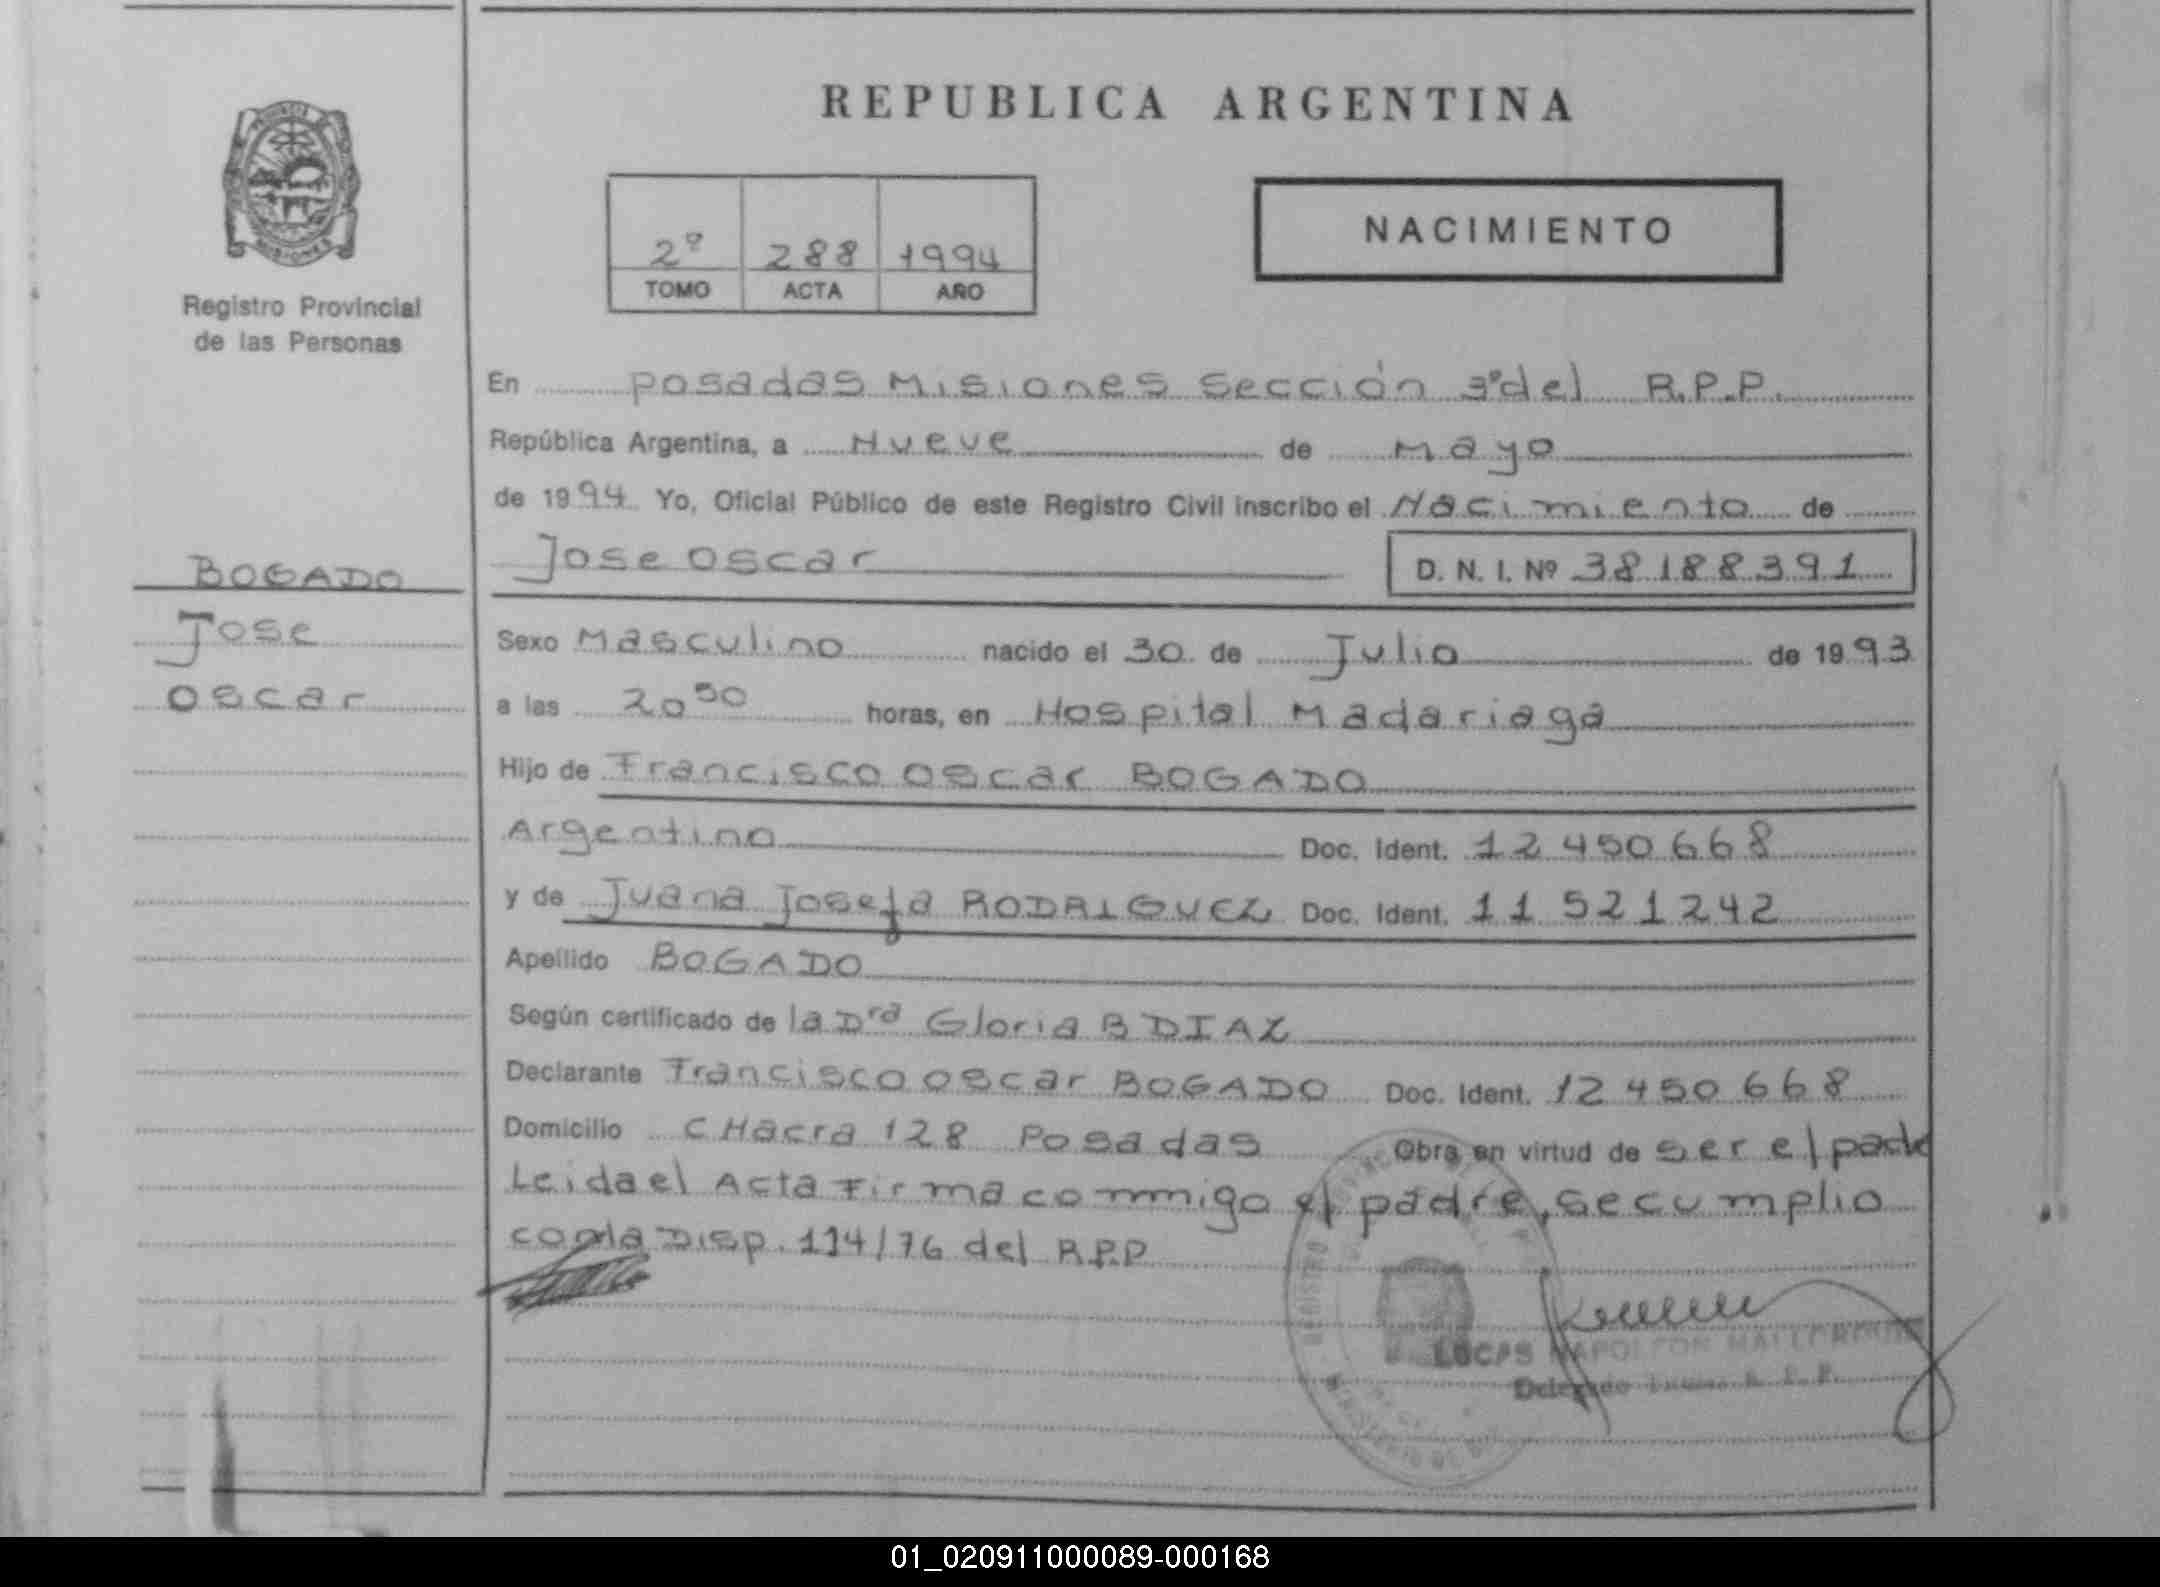 REPUBLICA ARGENTINA
2º 288 1994
TOMO ACTA AÑO
NACIMIENTO
Registro Provincial
de las Personas
BOGADO
Jose
oscar
En posadas Misiones Sección 3ª del R.P.P.
República Argentina, a Nueve de Mayo
de 1994 Yo, Oficial Público de este Registro Civil inscribo el Nacimiento de
Jose oscar D. N. I. Nº 38188391
Sexo Masculino nacido el 30 de Julio de 1993
a las 20 50 horas, en Hospital Madariaga
Hijo de Francisco oscar BOGADO
Argentino Doc. Ident. 12 450 668
y de Juana Josefa RODRIGUEZ Doc. Ident. 11 521 242
Apellido BOGADO
Según certificado de la Dra Gloria B DIAZ
Declarante Francisco oscar BOGADO Doc. Ident. 12 450 668
Domicilio CHacra 128 Posadas Obra en virtud de ser el padre
Leida el Acta Firma conmigo el padre, se cumplio
con la Disp. 114/76 del R.P.P
LUCAS NAPOLEON
Delegado
REGISTRO
MINISTERIO DE
01_020911000089-000168